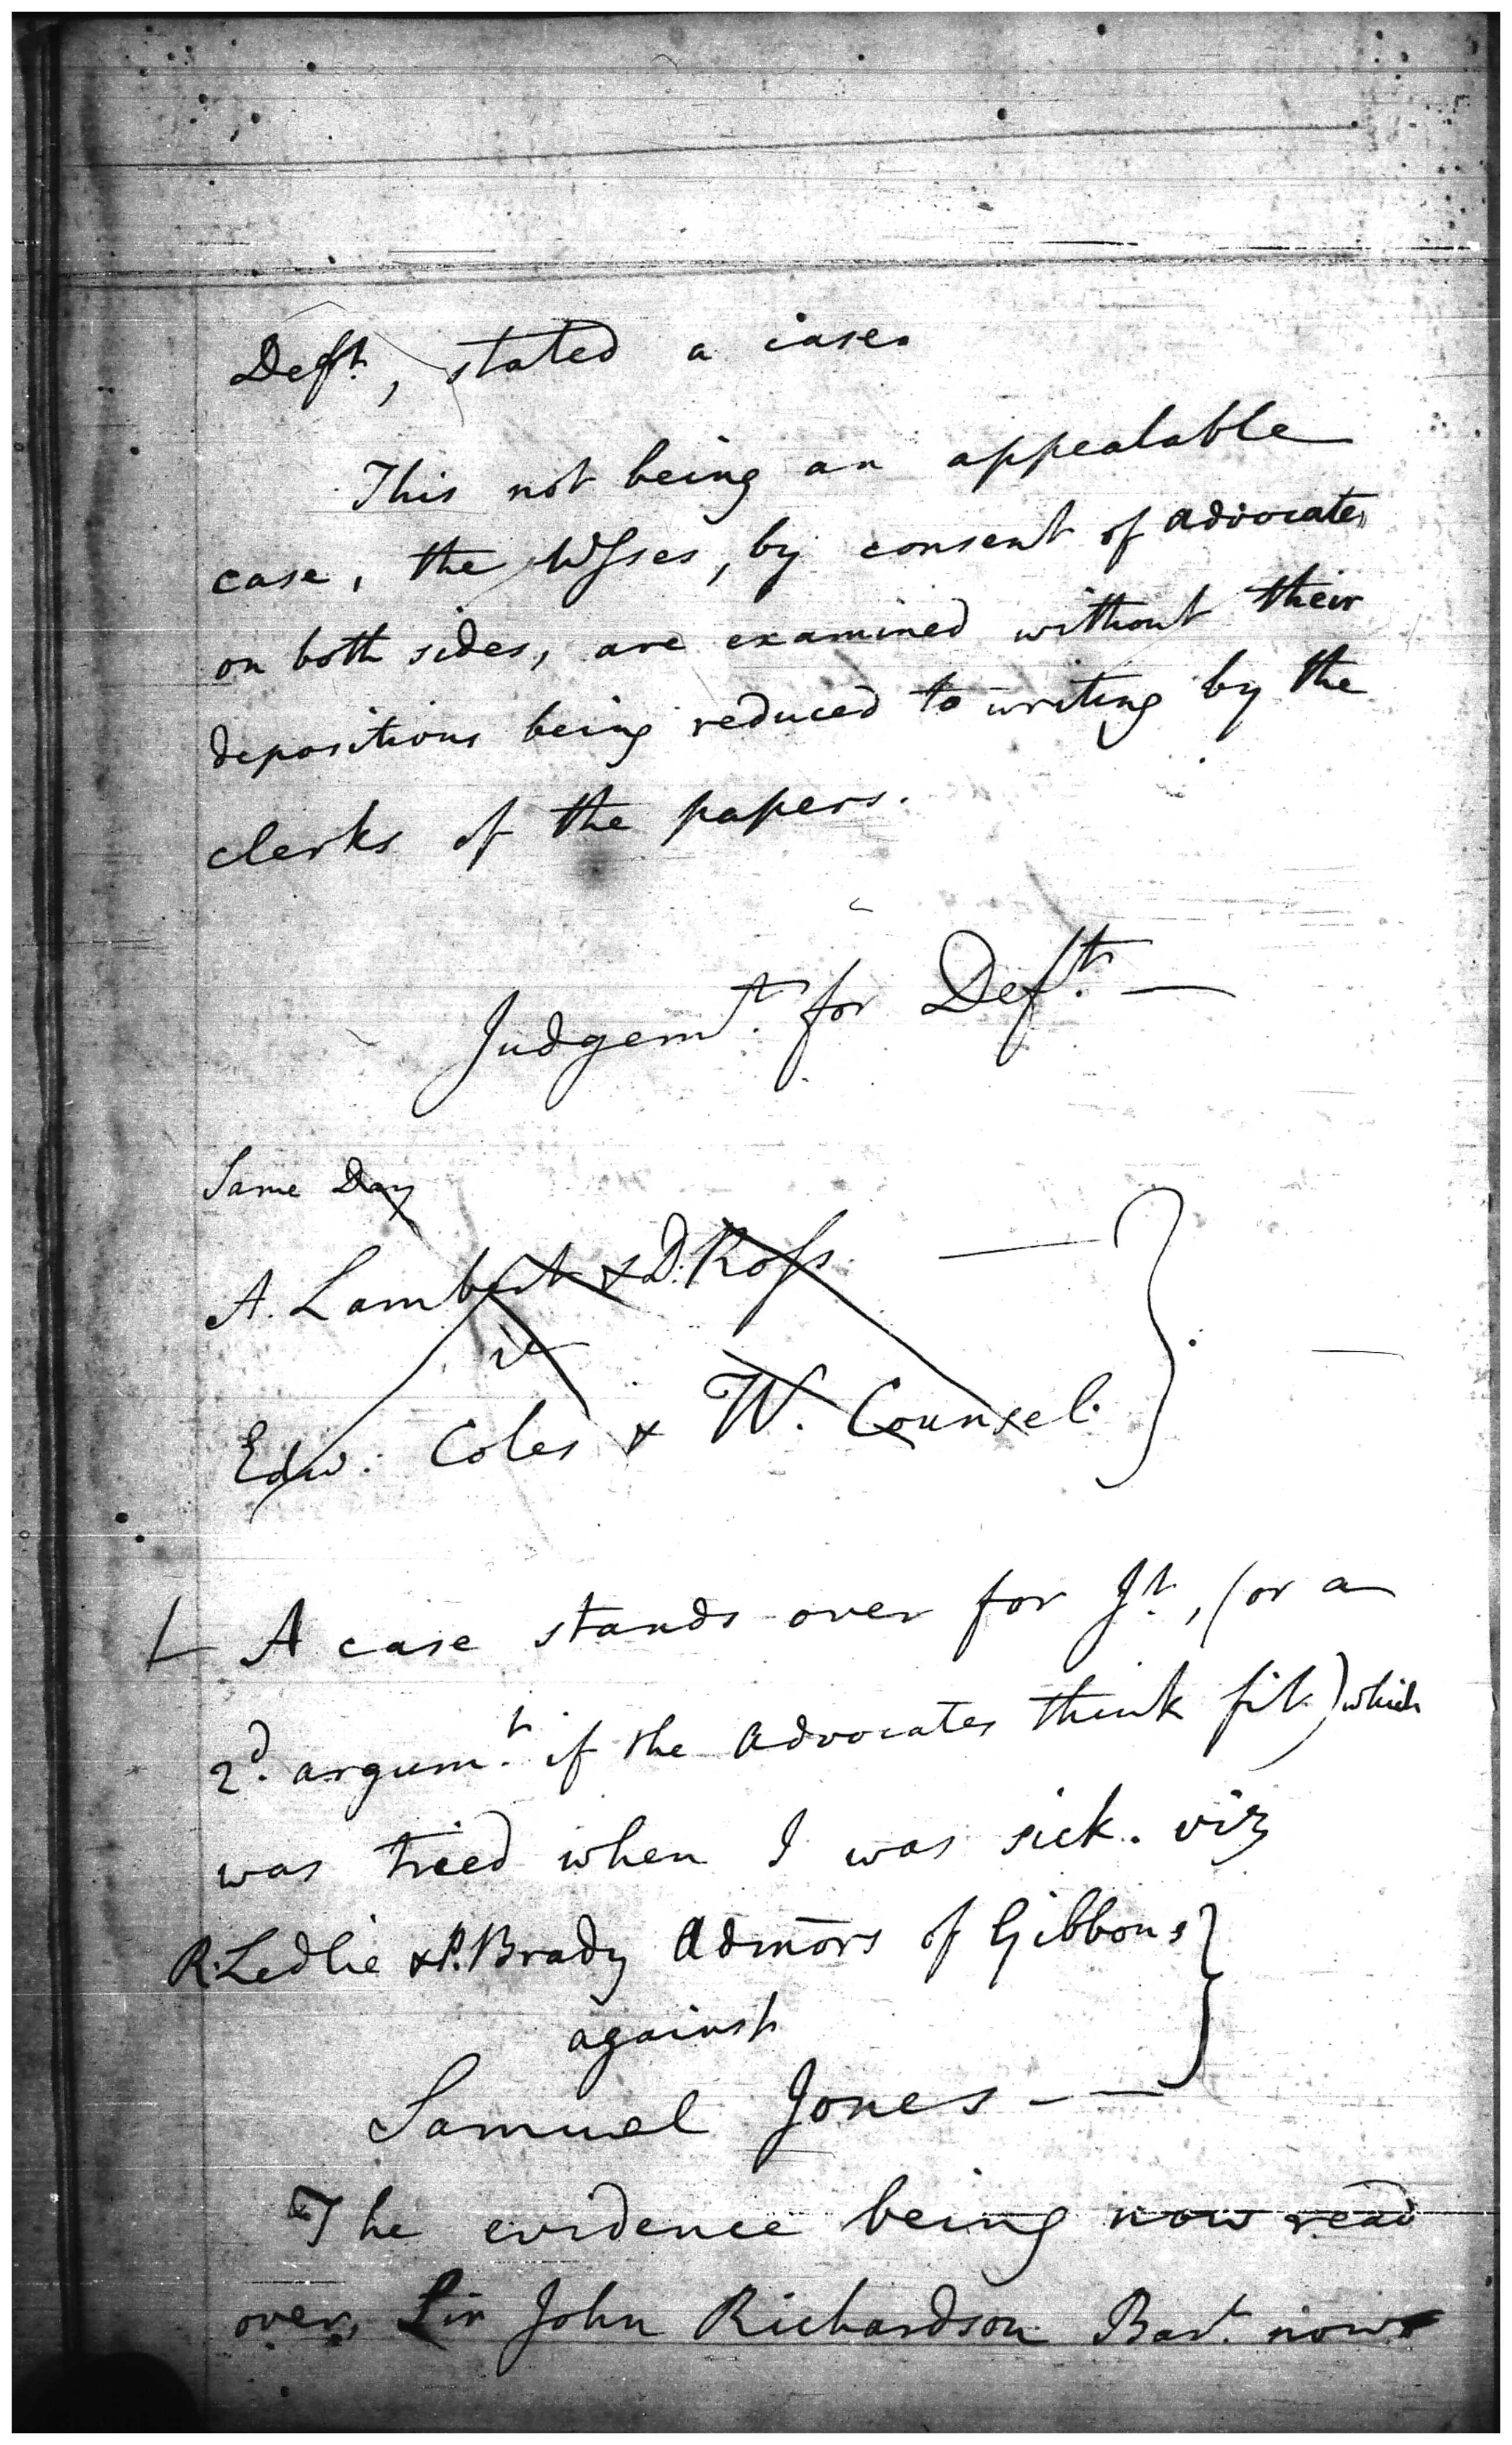 Deft., stated a case.
This not being an appealable
case, the Wsses, by consent of advocates
on both sides, are examined without their
depositions being reduced to writing by the
clerks of the papers.
Judgemt. for Deft. —
Same Day
A. Lambert & D. Ross. —
v
Edw: Coles & W. Counsel. —
A case stands over for Jt., (or a
2d. argumt. if the advocates think fit) which
was tried when I was sick. viz
R. Ledlie & P. Brady Admors of Gibbons
against
Samuel Jones — —
The evidence being now read
over, Sir John Richardson Bart. now